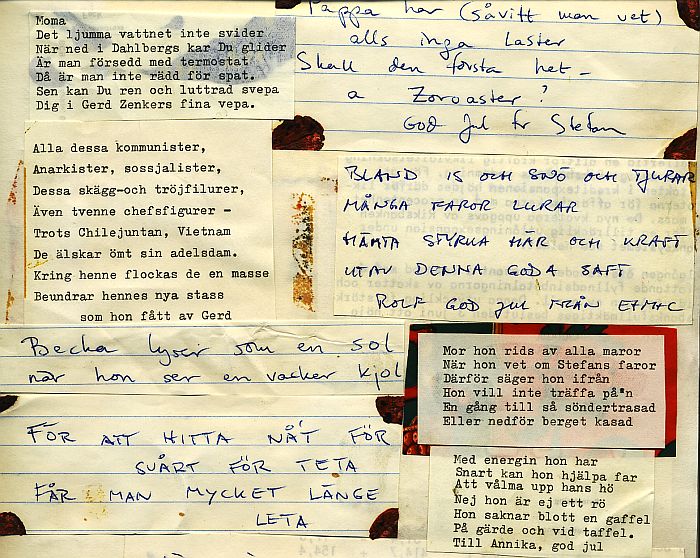 Moma
Det ljumma vattnet inte svider
När ned i Dahlbergs kar Du glider
Är man försedd med termostat
Då är man inte rädd för spat.
Sen kan Du ren och luttrad svepa
Dig i Gerd Zenkers fina vepa.
Pappa har (såvitt man vet)
alls inga laster
Skall den första het-
a Zoroaster?
God Jul fr Stefan
Alla dessa kommunister,
Anarkister, sossjalister,
Dessa skägg-och tröjfilurer,
Även tvenne chefsfigurer -
Trots Chilejuntan, Vietnam
De älskar ömt sin adelsdam.
Kring henne flockas de en masse
Beundrar hennes nya stass
som hon fått av Gerd
BLAND IS OCH SNÖ OCH TJURAR
MÅNGA FAROR LURAR
HÄMTA STYRKA HÄR OCH KRAFT
UTAV DENNA GODA SAFT
ROLF GOD JUL FRÅN
Becka lyser som en sol
när hon ser en vacker kjol
Mor hon rids av alla maror
När hon vet om Stefans faror
Därför säger hon ifrån
Hon vill inte träffa på'n
En gång till så söndertrasad
Eller nedför berget kasad
FÖR ATT HITTA NÅT FÖR
SVÅRT FÖR TETA
FÅR MAN MYCKET LÄNGE
LETA
Med energin hon har
Snart kan hon hjälpa far
Att vålma upp hans hö
Nej hon är ej ett rö
Hon saknar blott en gaffel
På gärde och vid taffel.
Till Annika, god jul